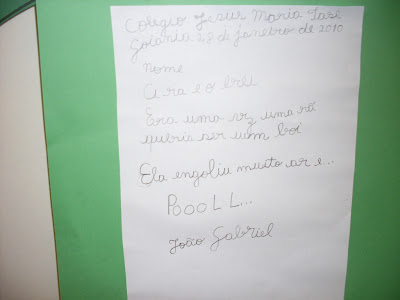 Colegio Jesus Maria José
Goiânia 28 de janeiro de 2010
nome
A ra e o brei
Era uma vz uma rã
queria ser uam boi
Ela engoliu muito ar e...
POOOLL...
João Gabriel